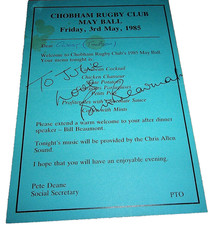 CHOBHAM RUGBY CLUB
MAY BALL
Friday, 3rd May, 1985
Dear
Welcome to Chobham Rugby Club's 1985 May Ball.
Your menu tonight is
Cocktail
Chicken Chasseur
Potatoes
Petit Pois
Profiteroles with Sauce
Mints
To Julie
love
Bill Beaumont
Please extend a warm welcome to your after dinner
speaker - Bill Beaumont.
Tonight's music will be provided by the Chris Allen
Sound.
I hope that you will have an enjoyable evening.
Pete Deane
Social Secretary
PTO